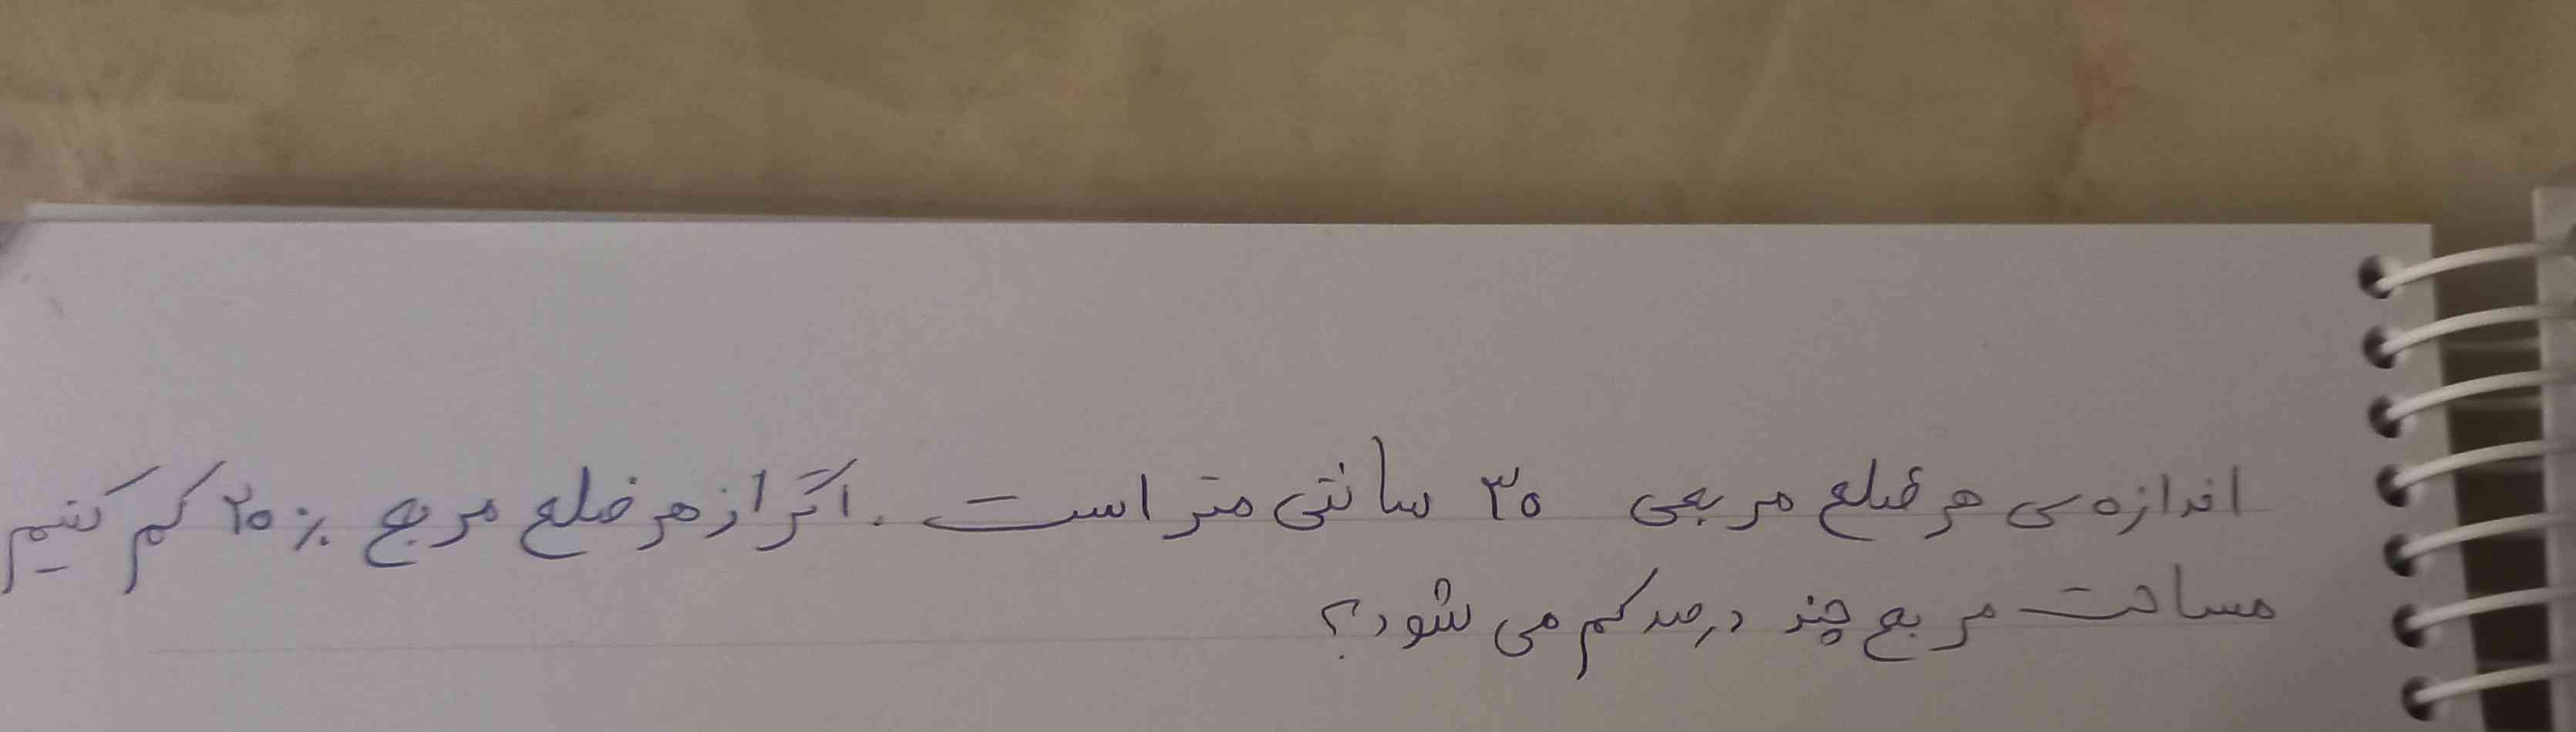 اندازه ی هر ضلع مربعی ۳۰ سانتی متر است . اگر از هر ضلع مربع ٪۲۰ کم کنیم
مساحت مربع چند درصد کم می شود؟